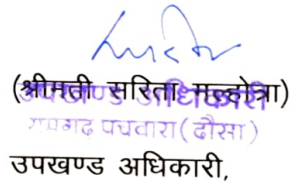 (श्रीमती सरिता मल्होत्रा)
उपखण्ड अधिकारी
रामगढ पचवारा (दौसा)
उपखण्ड अधिकारी,